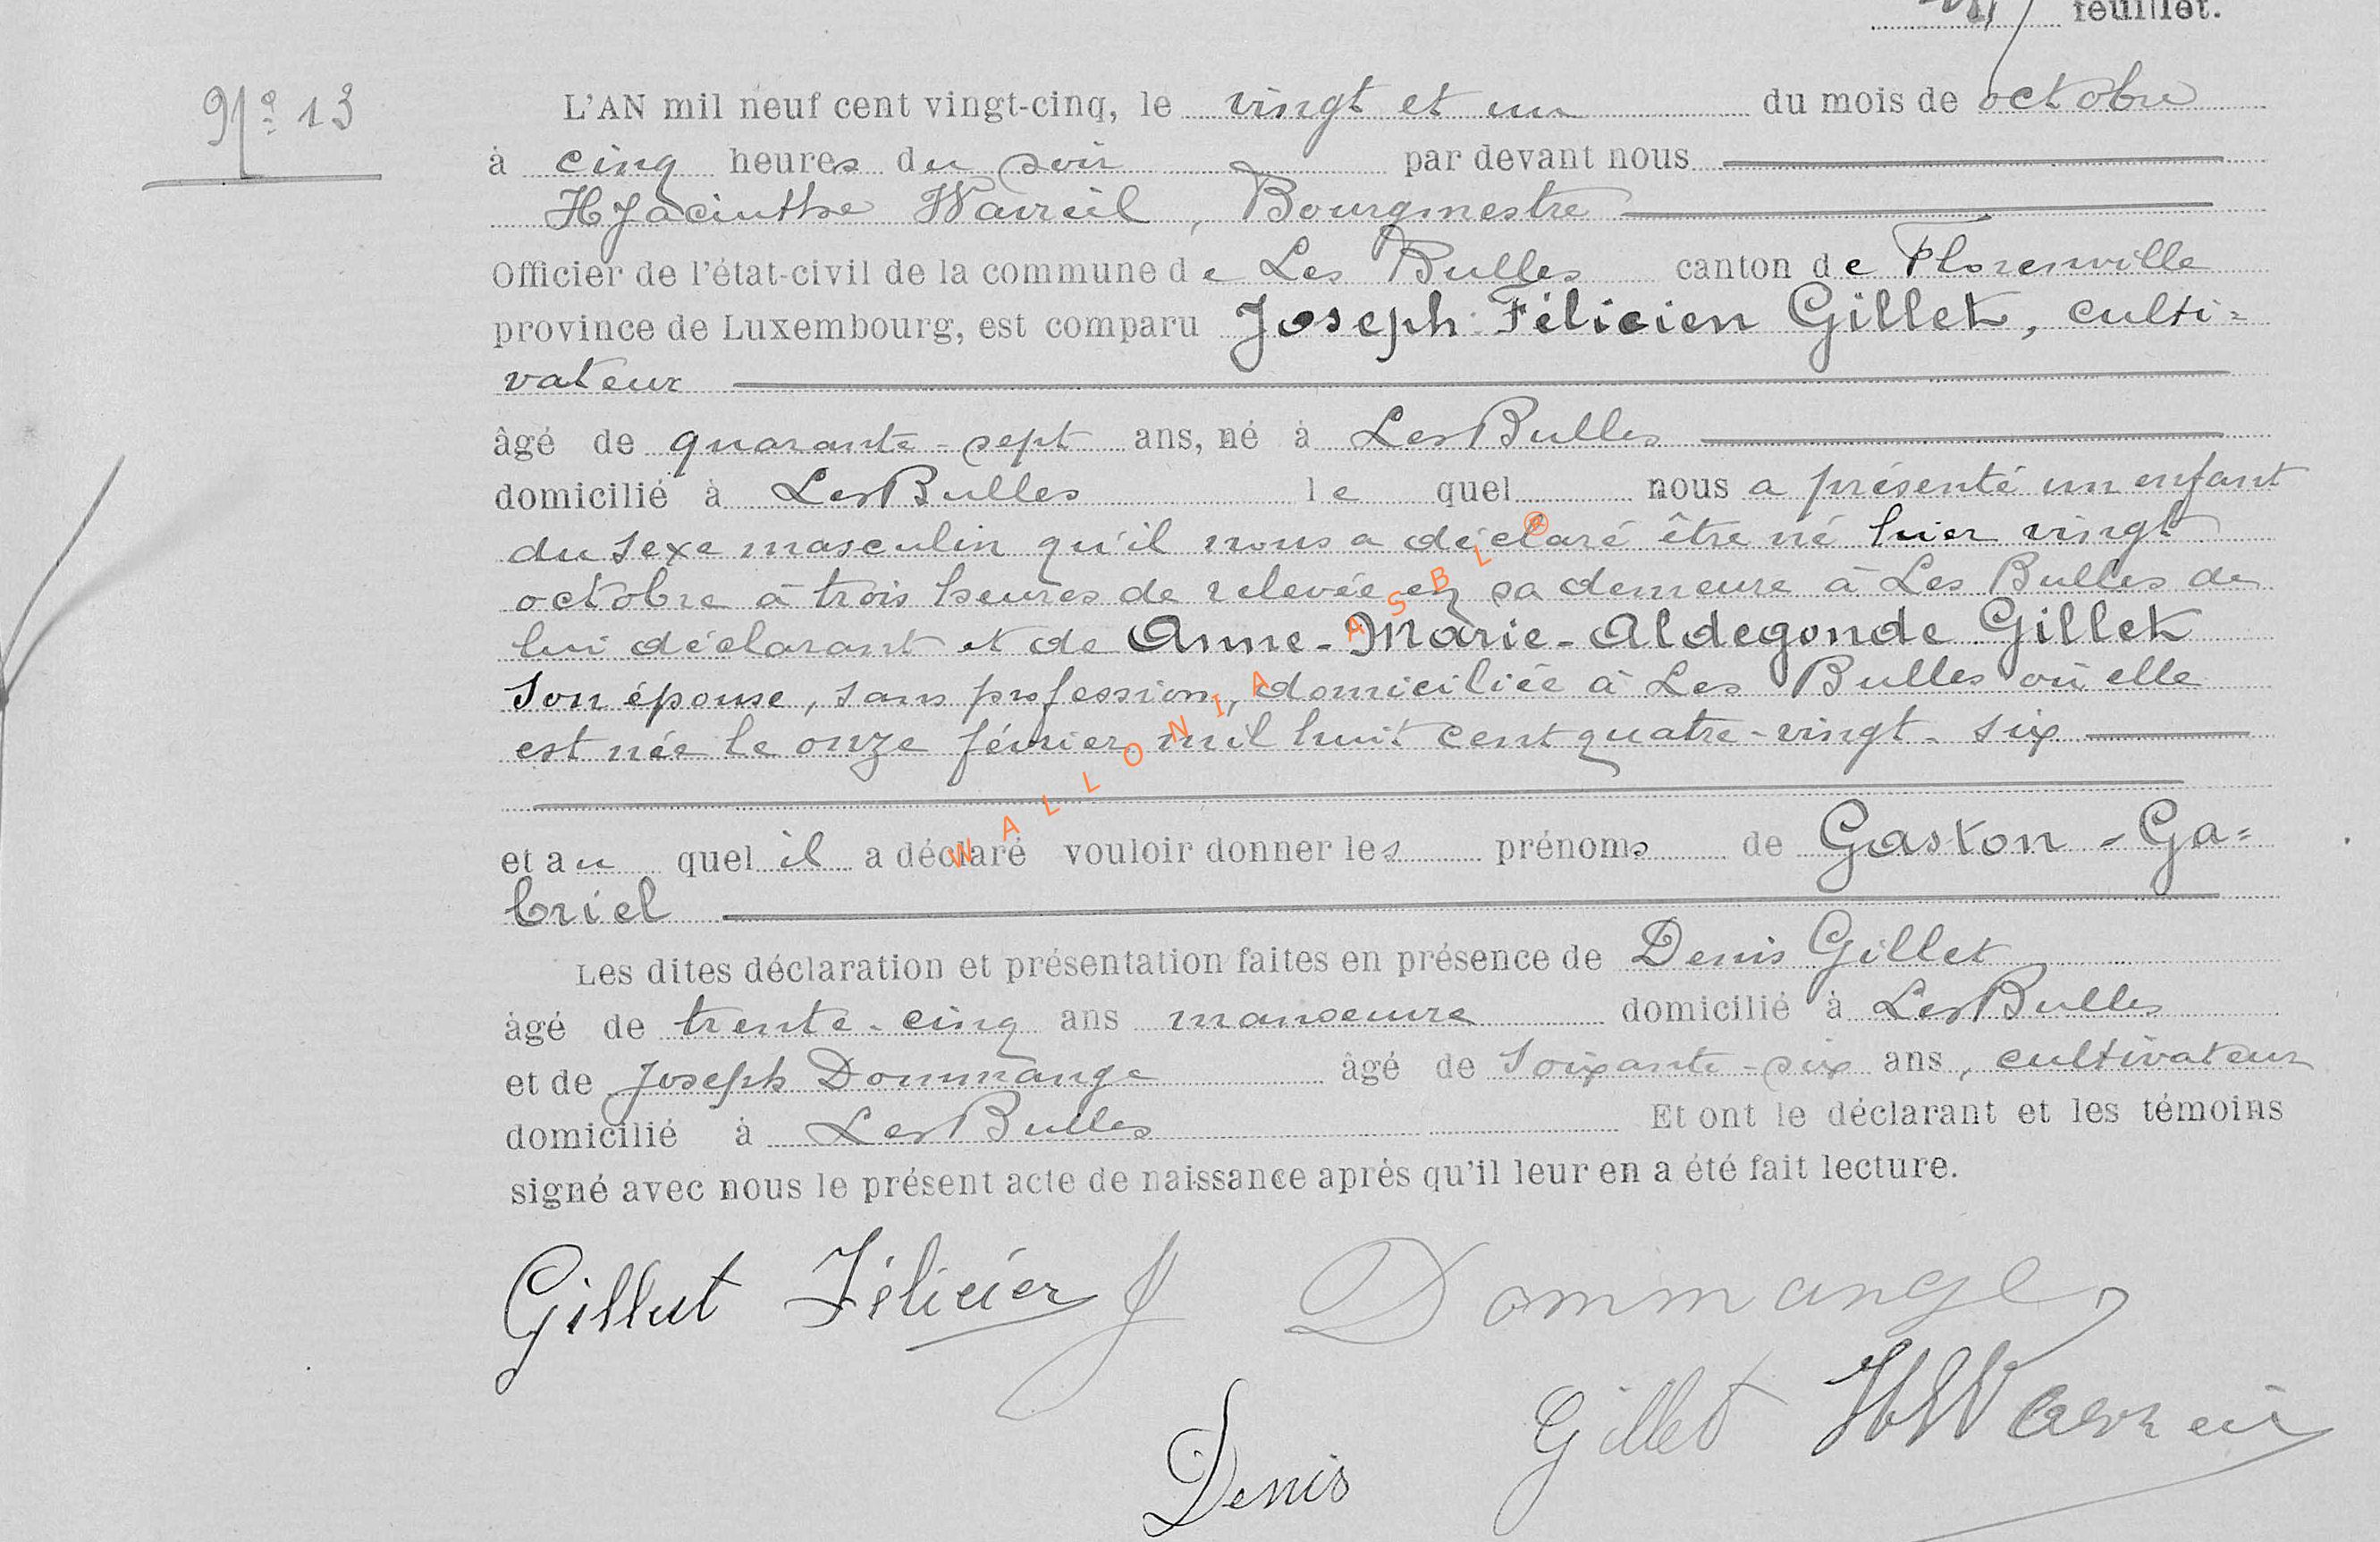 feuillet.
N° 13
L'AN mil neuf cent vingt-cinq, le vingt et un du mois de octobre
à cinq heures du soir par devant nous
Hyacinthe Wavreil, Bourgmestre
Officier de l'état-civil de la commune de Les Bulles canton de Florenville
province de Luxembourg, est comparu Joseph-Félicien Gillet, culti-
vateur
âgé de quarante-sept ans, né à Les Bulles
domicilié à Les Bulles le quel nous a présenté un enfant
du sexe masculin qu'il nous a déclaré être né hier vingt
octobre à trois heures de relevée en sa demeure à Les Bulles de
lui déclarant et de Anne-Marie-Aldegonde Gillet
son épouse, sans profession, domiciliée à Les Bulles où elle
est née le onze février mil huit cent quatre-vingt-six
WALLONIA ASBL ®
et au quel il a déclaré vouloir donner les prénoms de Gaston-Ga=
briel
Les dites déclaration et présentation faites en présence de Denis Gillet
âgé de trente-cinq ans manoeuvre domicilié à Les Bulles
et de Joseph Dommange âgé de soixante-six ans, cultivateur
domicilié à Les Bulles Et ont le déclarant et les témoins
signé avec nous le présent acte de naissance après qu'il leur en a été fait lecture.
Gillet Félicien J Dommange
Denis Gillet HWavreil